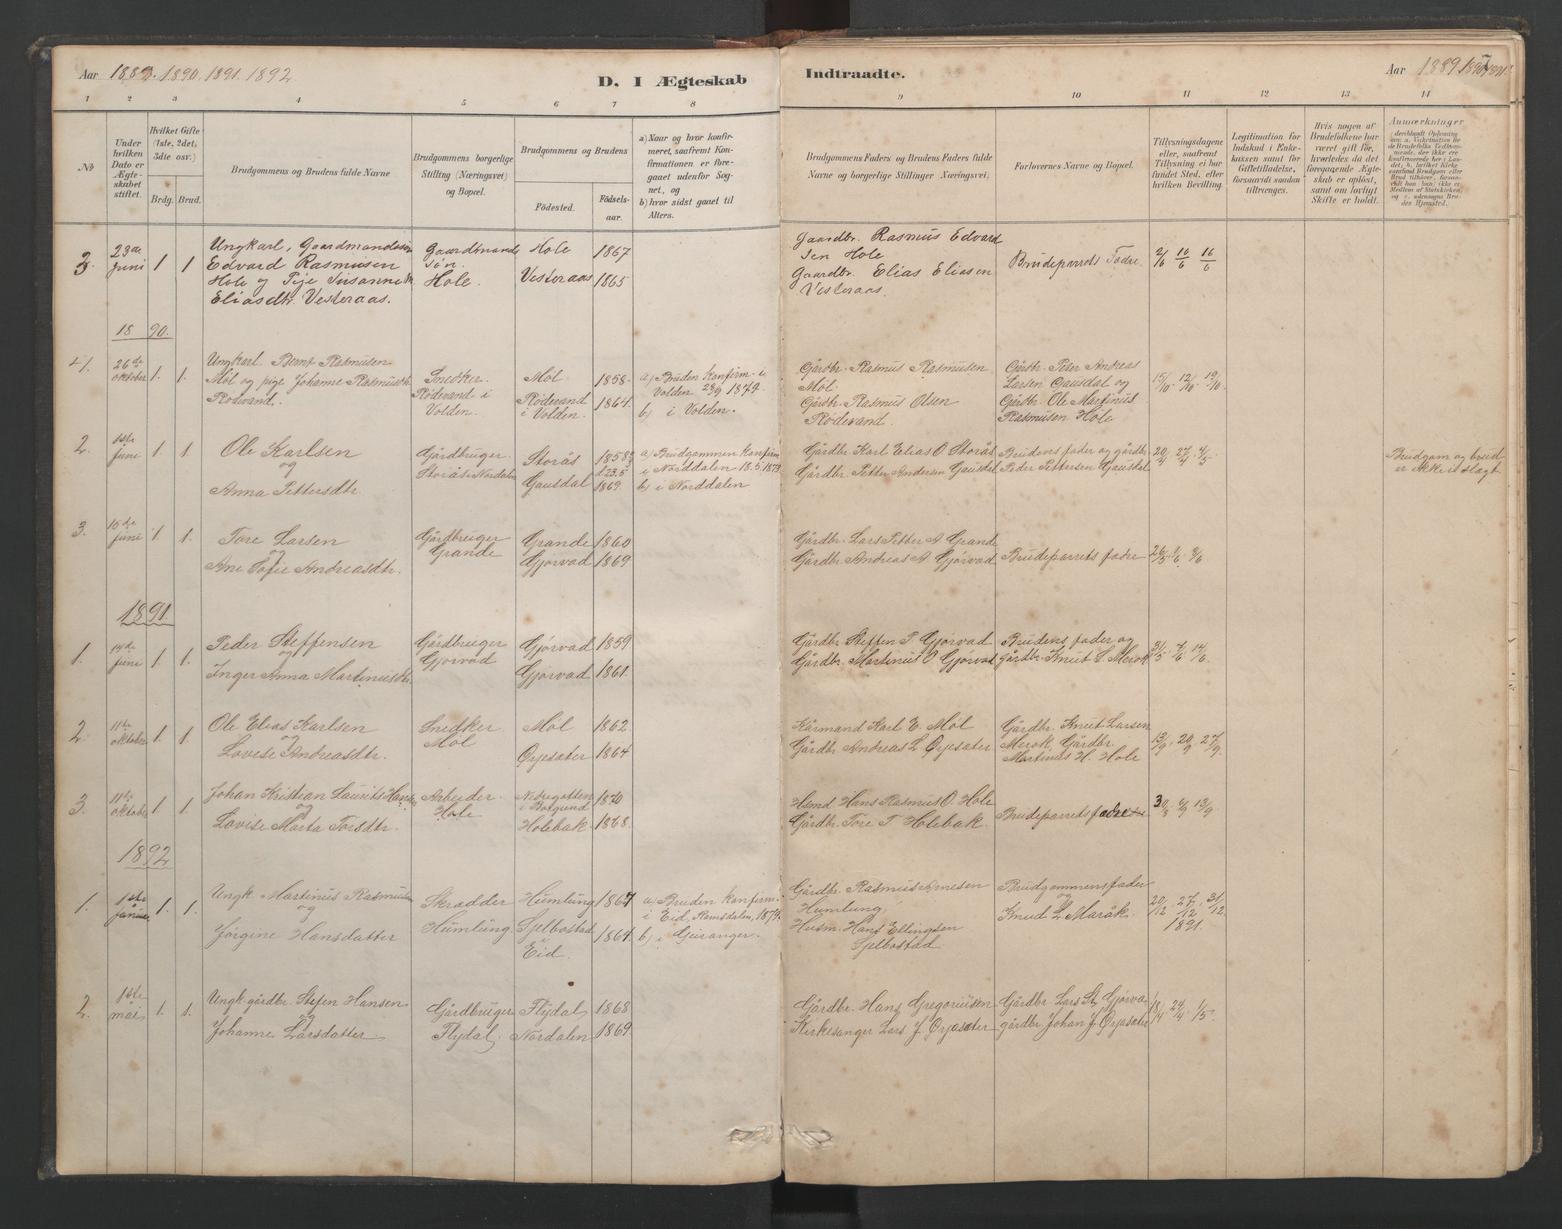 Aar 1889. 1890. 1891. 1892
D. I Ægteskab
Indtraadte.
Aar 1889
1 2 3 4 5 6 7 8 9 10 11 12 13 14
No
Under hvilken Dato er Ægteskabet stiftet.
Hvilket Gifte (1ste, 2det, 3die osv.)
Brdg. Brud.
Brudgommens og Brudens fulde Navne
Brudgommens borgerlige Stilling (Næringsvei) og Bopæl.
Brudgommens og Brudens
Fødested.
Fødselsaar.
a) Naar og hvor konfirmeret, saafremt Konfirmationen er foregaaet udenfor Sognet, og
b) hvor sidst gaaet til Alters.
Brudgommens Faders og Brudens Faders fulde Navne og borgerlige Stillinger (Næringsvei).
Forlovernes Navne og Bopæl.
Tillysningsdagene eller, saafremt Tillysning ei har fundet Sted, efter hvilken Bevilling.
Legitimation for Indskud i Enkekassen samt for Giftetilladelse, forsaavidt saadan tiltrænges.
Hvis nogen af Brudefolkene har været gift før, hvorledes da det foregaaende Ægteskab er opløst, samt om lovligt Skifte er holdt.
Anmærkninger
3. 23de Juni 1 1
Ungkarl, Gaardmandssøn
Edvard Rasmusen
Hole og Pige Susanne
Eliasdtr. Vesteraas.
Gaardmands
søn
Hole.
Hole 1867
Vesteraas 1865
Gaardbr. Rasmus Edvard
sen Hole
Gaardbr. Elias Eliasen
Vesteraas.
Brudeparrets Fædre
2/6 10/6 16/6
1890.
1. 26de oktober 1. 1.
Ungkarl Bernt Rasmusen
Møl og pige Johanne Rasmusdtr.
Rødvand.
Snedker.
Rødevand i
Volden.
Møl. 1858.
Rødevand
i Volden. 1864.
a) Bruden Konfirm. i
Volden 28/9 1879.
b) i Volden.
Gårdbr. Rasmus Rasmusen
Møl.
Gårdbr. Rasmus Olsen
Rødevand.
Gårdbr. Peter Andreas
Larsen Gausdal og
Gårdbr. Ole Martinus
Rasmusen Hole
12/10. 19/10.
2. 1ste Juni 1 1
Ole Karlsen
og
Anna Pettersdtr.
Gårdbruger.
Storås i Nordalen
Storås 1858
Gausdal 1869
a) Brudgommen Konfirm
i Norddalen 18.5.1873
b) i Norddalen
Gårdbr. Karl Elias O. Storås
Gårdbr. Petter Andersen Gausdal
Brudens fader og gårdbr.
Peder Pettersen Gausdal
20/4 27/4 4/5
Brudgom og brud
er ikke i slægt
3. 10de juni 1. 1.
Tore Larsen
og
Ane Sofie Andreasdtr.
Gårdbruger
Grande
Grande 1860
Gjørvad 1869
Gårdbr. Lars Petter A. Grande
Gårdbr. Andreas A. Gjørvad
Brudeparrets fædre
1891
1. 14de juni 1. 1.
Peder Steffensen
og
Inger Anna Martinusdtr.
Gårdbruger
Gjørvad
Gjørvad 1859
Gjørvad 1861.
Gårdbr. Steffen P. Gjørvad
Gårdbr. Martinus O. Gjørvad
Brudens fader og
Gårdbr. Knut L. Merok
31/5 7/6 14/6.
2. 11te oktober 1 1
Ole Elias Karlsen
og
Lovise Andreasdtr.
Snedker
Møl
Møl 1862
Ørjesæter 1864
Kårmand Karl E. Møl
Gårdbr. Andreas L. Ørjesæter
Gårdbr. Knut Larsen
Merok, Gårdbr.
Martinus H. Hole
13/9. 20/9 27/9.
3. 11te oktober 1 1
Johan Kristian Laurits Hansen
og
Lovise Marta Torsdtr.
Arbeider
Hole
i Borgund 1870
Holebak 1868.
Hsmd Hans Rasmus O. Hole
Gårdbr. Tore T. Holebak.
Brudeparrets fædre
30/8 6/9 13/9
1892
1. 1ste januar 1. 1.
Ungk. Martinus Rasmusen
og
Jørgine Hansdatter
Skrædder
Humlung
Humlung 1867
Sjelbostad
Eid. 1864.
a) Bruden konfirm.
i Eid, Romsdalen, 1879.
b) i Geiranger.
Gårdbr. Rasmus Arnesen
Humlung
Husm. Hans Ellingsen
Sjelbostad
Brudgommens fader
og
Knud L. Maråk.
20/12 27/12. 31/12.
1891.
2. 1ste mai 1. 1.
Ungk. gårdbr. Stefen Hansen
og
Johanne Larsdatter
Gårdbruger
Flydal
Flydal 1868
Nordalen 1869
Gårdbr. Hans Gregoriusen
Kirkesanger Lars J. Ørjasæter
Gårdbr. Lars St. Gjørva
gårdbr. Johan J. Ørjasæter
18/4 24/4. 1/5.